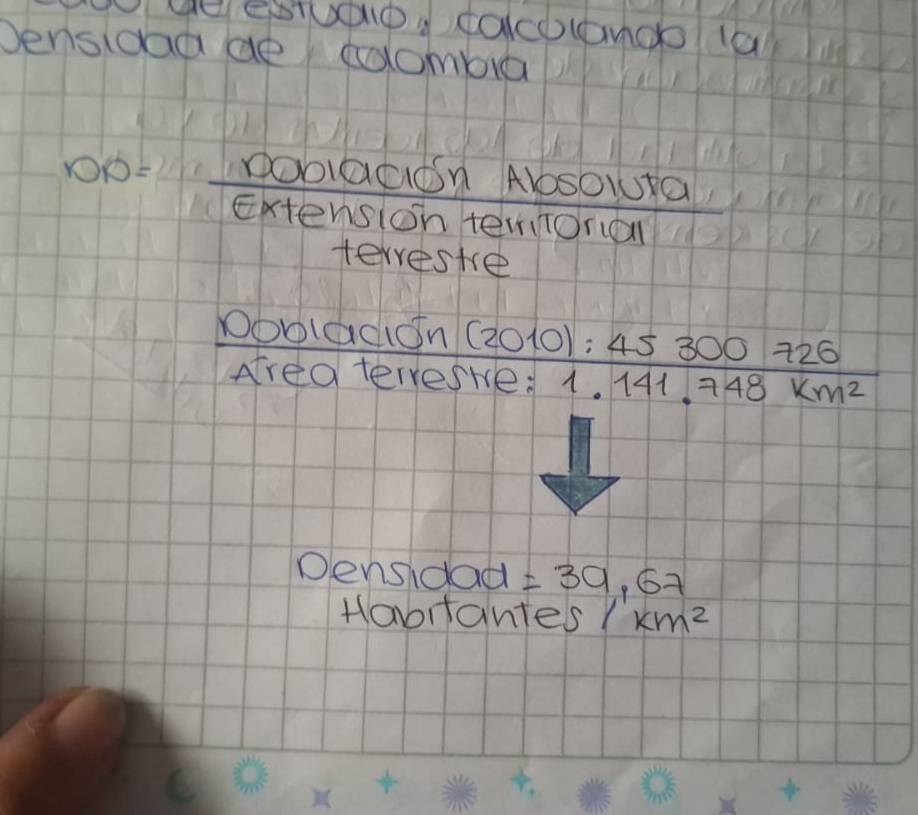 de estudio: calculando la
Densidad de Colombia
DP= Población Absoluta
Extensión territorial
terrestre
Población (2010): 45 300 726
Área terrestre: 1.141.748 Km²
Densidad = 39,67
Habitantes / km²